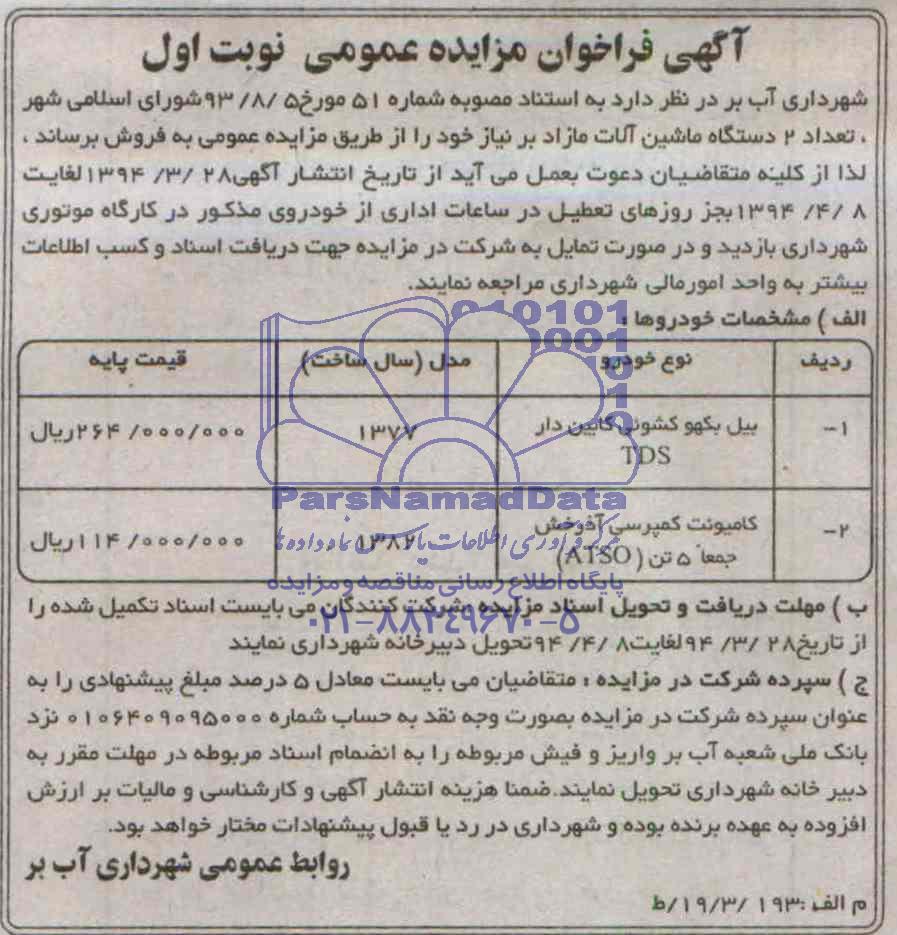 آگهی فراخوان مزایده عمومی نوبت اول
شهرداری آب بر در نظر دارد به استناد مصوبه شماره ۵۱ مورخ۵ /۸/ ۹۳شورای اسلامی شهر
، تعداد ۲ دستگاه ماشین آلات مازاد بر نیاز خود را از طریق مزایده عمومی به فروش برساند ،
لذا از کلیه متقاضیان دعوت بعمل می آید از تاریخ انتشار آگهی۲۸ /۳/ ۱۳۹۴لغایت
۸ /۴/ ۱۳۹۴بجز روزهای تعطیل در ساعات اداری از خودروی مذکور در کارگاه موتوری
شهرداری بازدید و در صورت تمایل به شرکت در مزایده جهت دریافت اسناد و کسب اطلاعات
بیشتر به واحد امورمالی شهرداری مراجعه نمایند.
الف ) مشخصات خودروها :
ردیف نوع خودرو مدل (سال ساخت) قیمت پایه
۱- بیل بکهو کشوئی کابین دار ۱۳۷۷ ۲۶۴/ ۰۰۰/۰۰۰ریال
TDS
۲- کامیونت کمپرسی آذرخش ۱۳۸۲ ۱۱۴/ ۰۰۰/۰۰۰ریال
جمعاً ۵ تن (ATSO)
010101
0001
ParsNamadData
مرکز فرآوری اطلاعات پارس نماد داده ها
پایگاه اطلاع رسانی مناقصه و مزایده
۰۲۱-۸۸۳۴۹۶۷۰-۵
ب ) مهلت دریافت و تحویل اسناد مزایده :شرکت کنندگان می بایست اسناد تکمیل شده را
از تاریخ۲۸ /۳/ ۹۴لغایت۸ /۴/ ۹۴تحویل دبیرخانه شهرداری نمایند
ج ) سپرده شرکت در مزایده : متقاضیان می بایست معادل ۵ درصد مبلغ پیشنهادی را به
عنوان سپرده شرکت در مزایده بصورت وجه نقد به حساب شماره ۰۱۰۶۴۰۹۰۹۵۰۰۰ نزد
بانک ملی شعبه آب بر واریز و فیش مربوطه را به انضمام اسناد مربوطه در مهلت مقرر به
دبیر خانه شهرداری تحویل نمایند.ضمنا هزینه انتشار آگهی و کارشناسی و مالیات بر ارزش
افزوده به عهده برنده بوده و شهرداری در رد یا قبول پیشنهادات مختار خواهد بود.
روابط عمومی شهرداری آب بر
م الف :۱۹۳ /۱۹/۳/ط